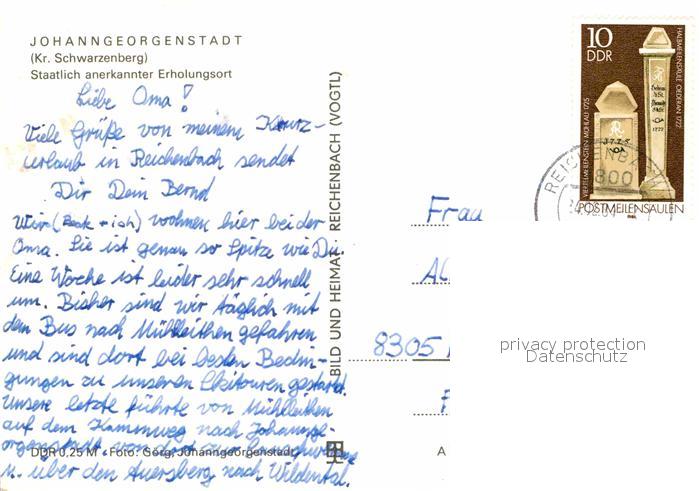 JOHANNGEORGENSTADT
(Kr. Schwarzenberg)
Staatlich anerkannter Erholungsort
Liebe Oma!
Viele Grüße von meinem Kurz-
urlaub in Reichenbach sendet
Dir Dein Bernd
Wir (Beate + ich) wohnen hier bei der
Oma. Sie ist genau so Spitze wie Du.
Eine Woche ist leider sehr schnell
um. Bisher sind wir täglich mit
dem Bus nach Mühlleithen gefahren
und sind dort bei besten Bedin-
gungen zu unseren Skitouren gestartet.
Unsere letzte führte von Mühlleithen
auf dem Kammweg nach Johannge-
orgenstadt, von dort zur
u. über den Auersberg nach Wildental.
DDR 0,25 M · Foto: Görg, Johanngeorgenstadt
BILD UND HEIMAT REICHENBACH (VOGTL)
10
DDR
VIERTELMEILENSTEIN MÜHLAU 1725
HALBMEILENSÄULE OEDERAN 1722
1725
1722
POSTMEILENSÄULEN
REICHENBACH
9800
Frau
8305
A
privacy protection
Datenschutz